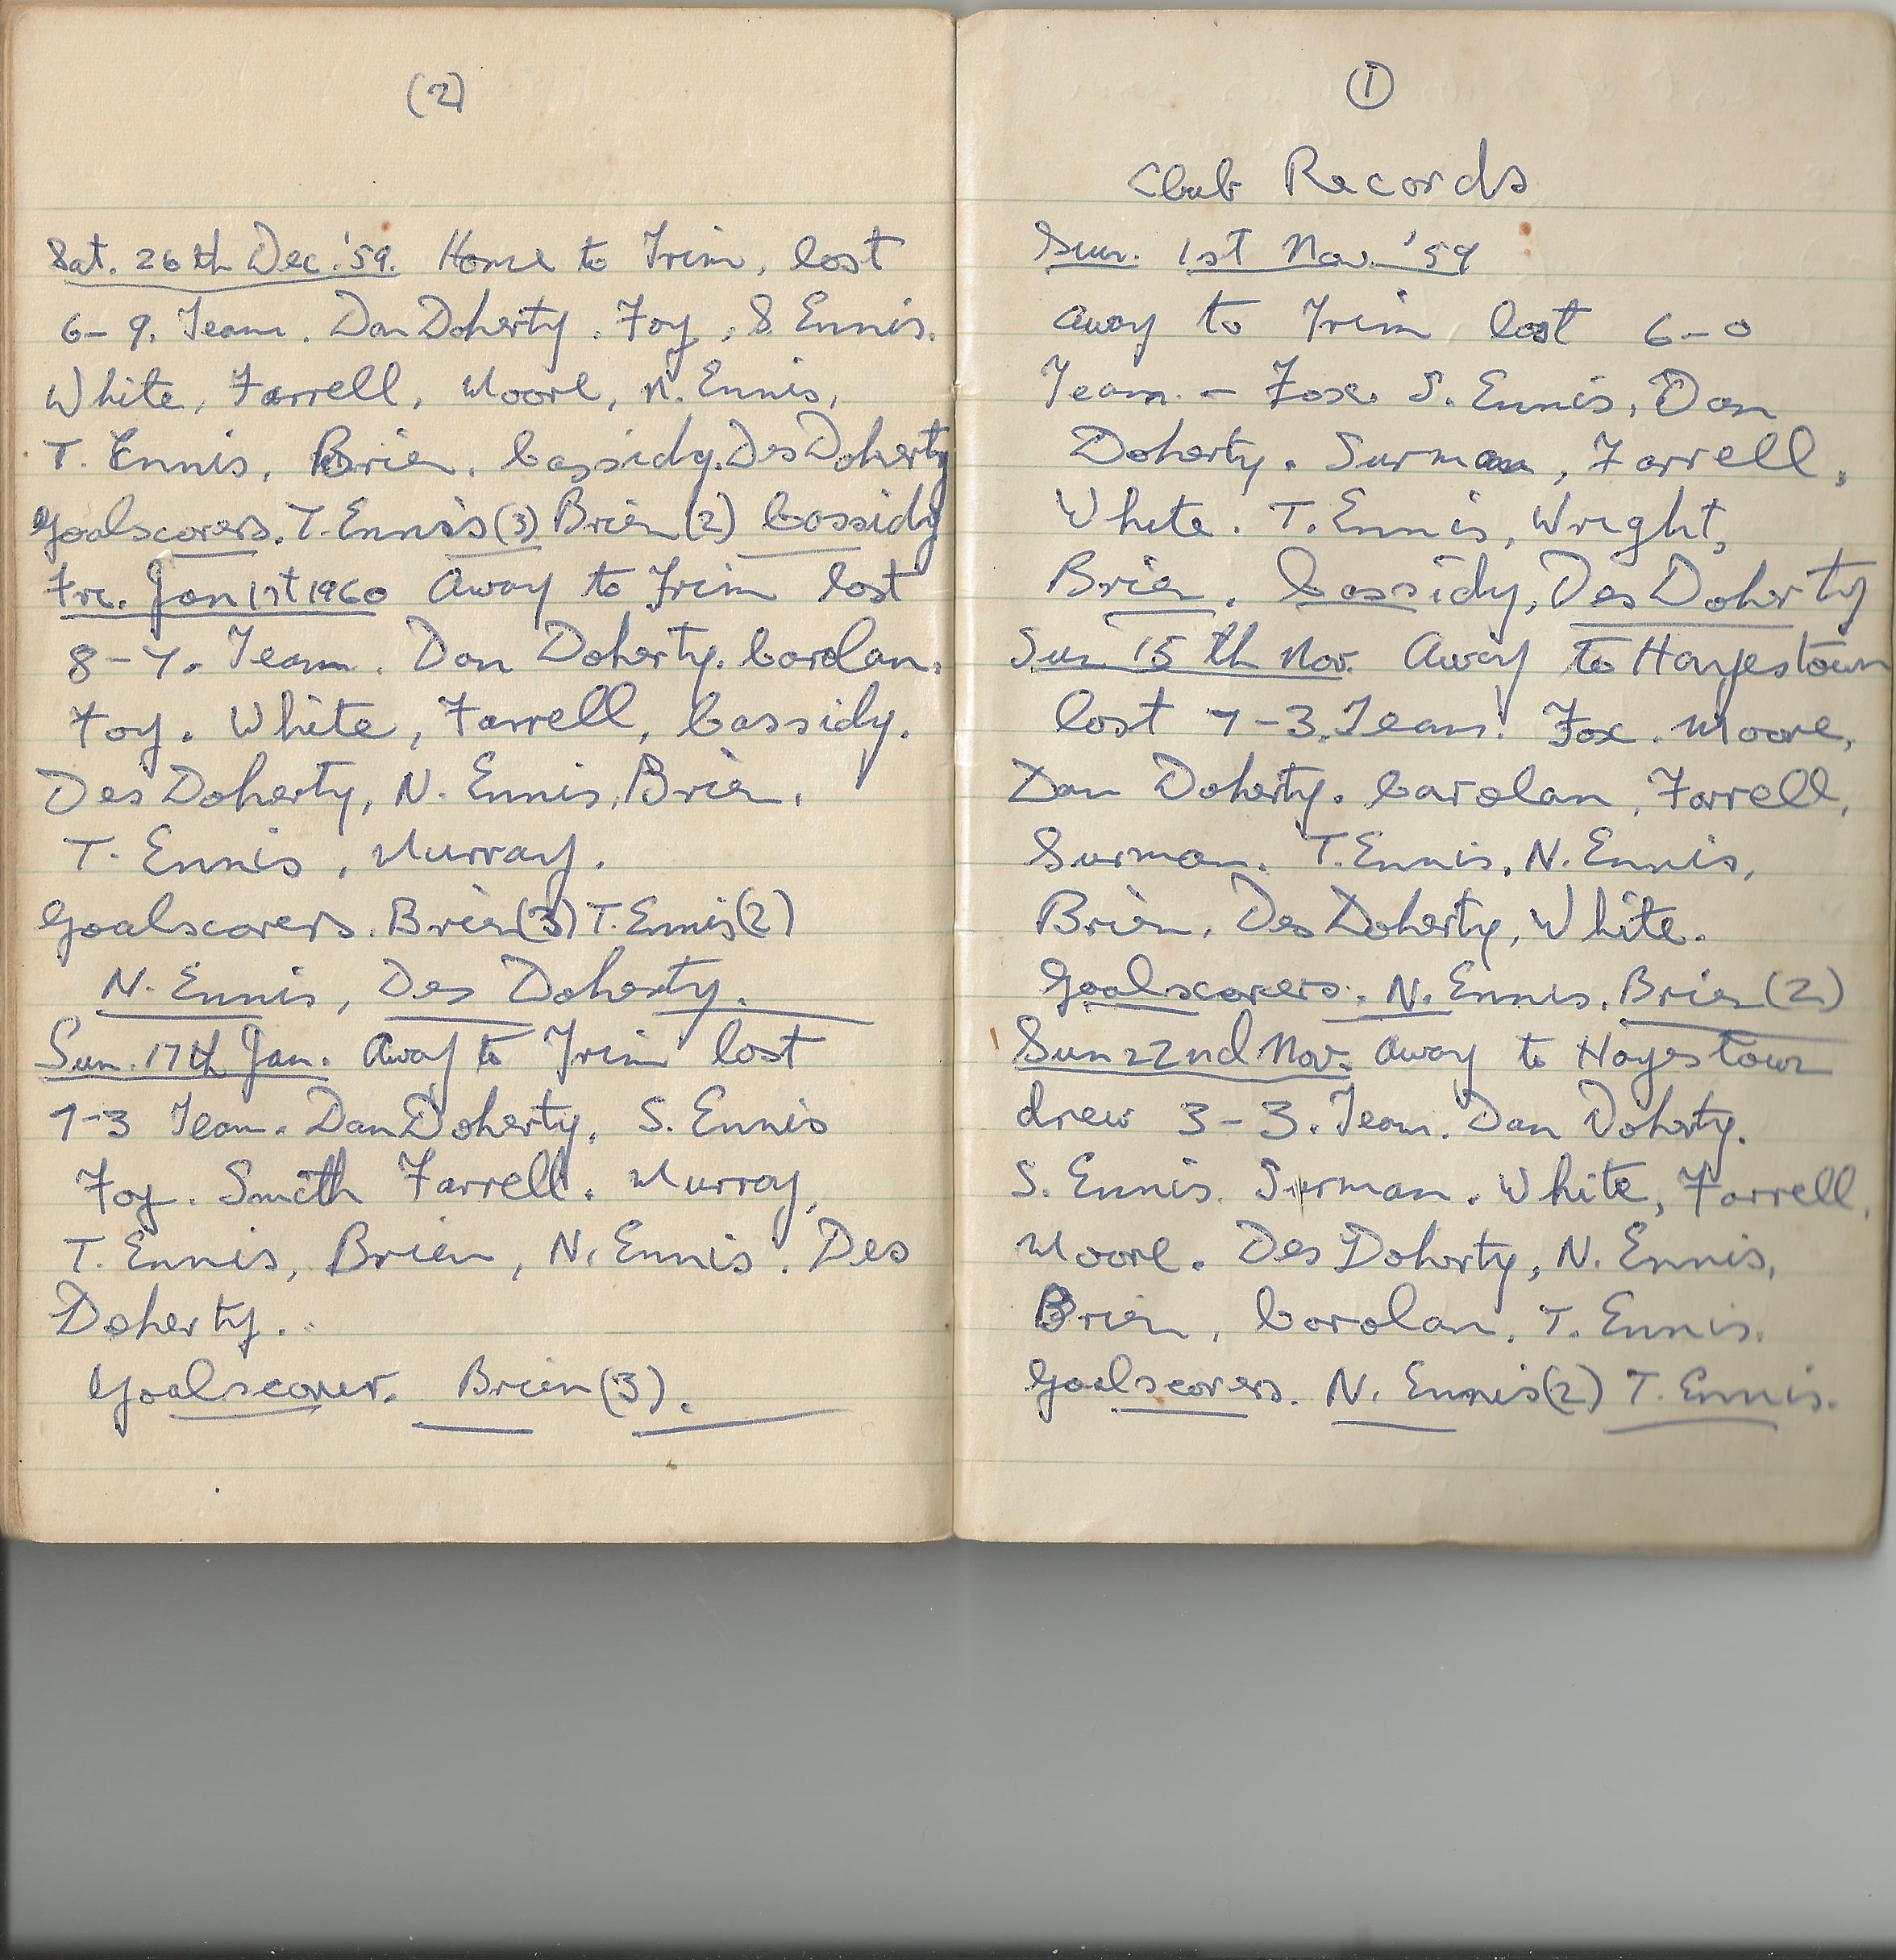 (2)
Sat. 26th Dec. '59. Home to Trim, lost
6-9. Team. Dan Doherty. Foy, S. Ennis.
White, Farrell, Moore, N. Ennis,
T. Ennis, Brien, Cassidy. Des Doherty
Goalscorers. T. Ennis (3) Brien (2) Cassidy
Fri. Jan 1st 1960 Away to Trim lost
8-7. Team. Dan Doherty. Carolan.
Foy. White, Farrell, Cassidy.
Des Doherty, N. Ennis, Brien.
T. Ennis, Murray.
Goalscorers. Brien (3) T. Ennis (2)
N. Ennis, Des Doherty.
Sun. 17th Jan. Away to Trim lost
7-3 Team. Dan Doherty. S. Ennis
Foy. Smith Farrell. Murray,
T. Ennis, Brien, N. Ennis. Des
Doherty..
Goalscorer. Brien (3).
(1)
Club Records
Sun. 1st Nov. '59
Away to Trim lost 6-0
Team. - Fox. S. Ennis, Dan
Doherty. Surman, Farrell,
White. T. Ennis, Wright,
Brien. Cassidy, Des Doherty
Sun 15th Nov. Away to Hayestown
lost 7-3. Team: Fox. Moore,
Dan Doherty. Carolan, Farrell,
Surman. T. Ennis, N. Ennis,
Brien. Des Doherty, White.
Goalscorers. N. Ennis. Brien (2)
Sun 22nd Nov. Away to Hayestown
drew 3-3. Team. Dan Doherty.
S. Ennis. Surman. White, Farrell,
Moore. Des Doherty, N. Ennis,
Brien, Carolan, T. Ennis.
Goalscorers. N. Ennis (2) T. Ennis.